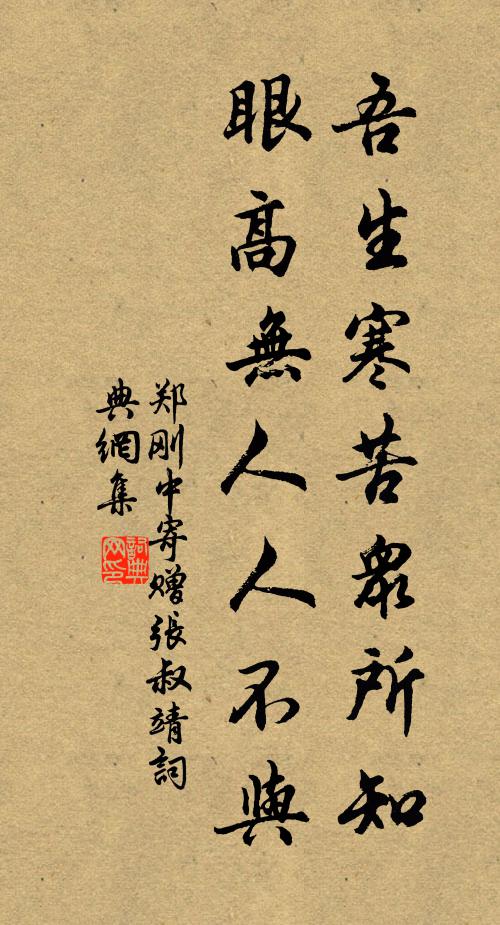 吾生寒苦衆所知
眼高無人人不與
郑刚中寄赠張叔靖詞
典網集
詞典
网印